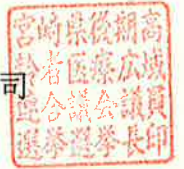 司
宮崎県後期高
齢者医療広域
連合議会議員
選挙選挙長印